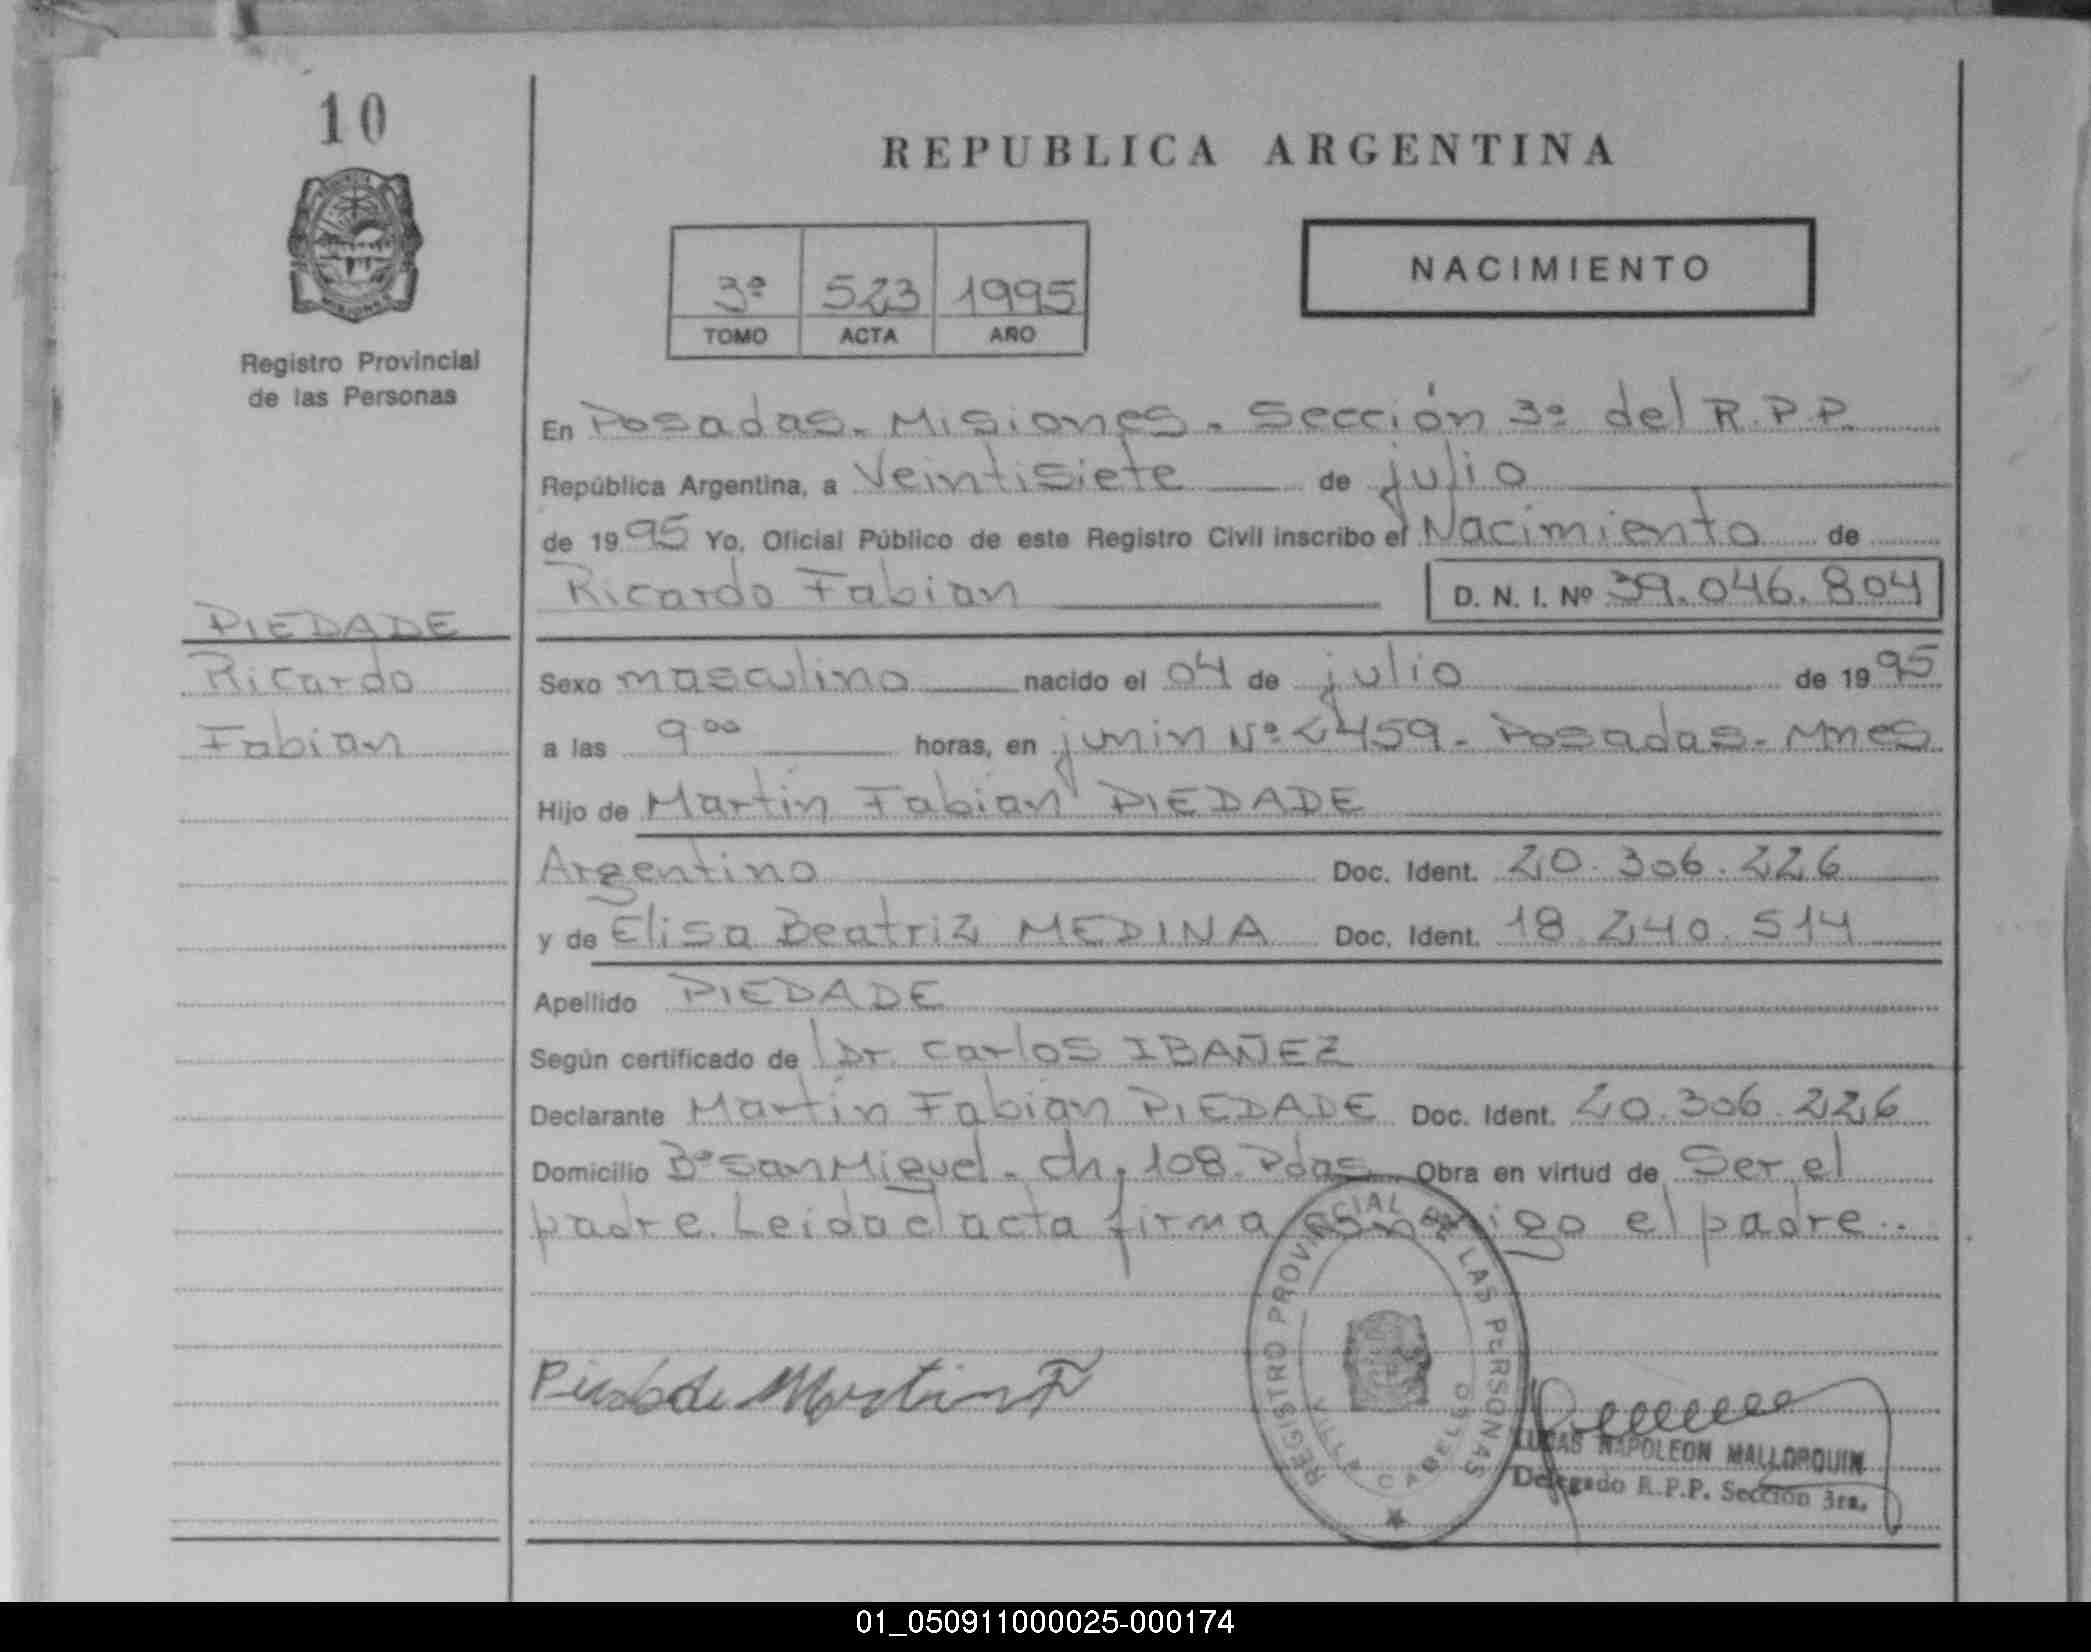 10
REPUBLICA ARGENTINA
3º 523 1995
TOMO ACTA AÑO
NACIMIENTO
Registro Provincial
de las Personas
En Posadas - Misiones - Sección 3º del R.P.P.
República Argentina, a Veintisiete de julio
de 1995 Yo, Oficial Público de este Registro Civil inscribo el Nacimiento de
Ricardo Fabian D. N. I. Nº 39.046.804
PIEDADE
Ricardo
Fabian
Sexo masculino nacido el 04 de julio de 1995
a las 9 00 horas, en junin Nº 2459 - Posadas - Mnes
Hijo de Martin Fabian PIEDADE
Argentino Doc. Ident. 20.306.226
y de Elisa Beatriz MEDINA Doc. Ident. 18.240.514
Apellido PIEDADE
Según certificado de Dr. Carlos IBAÑEZ
Declarante Martin Fabian PIEDADE Doc. Ident. 20.306.226
Domicilio Bº San Miguel - ch. 108. Pdas Obra en virtud de Ser el
padre. Leida el acta firma conmigo el padre..
REGISTRO PROVINCIAL DE LAS PERSONAS
VILLA CABELLO
Piedade Martin F
LUCAS NAPOLEON MALLORQUIN
Delegado R.P.P. Sección 3ra.
01_050911000025-000174